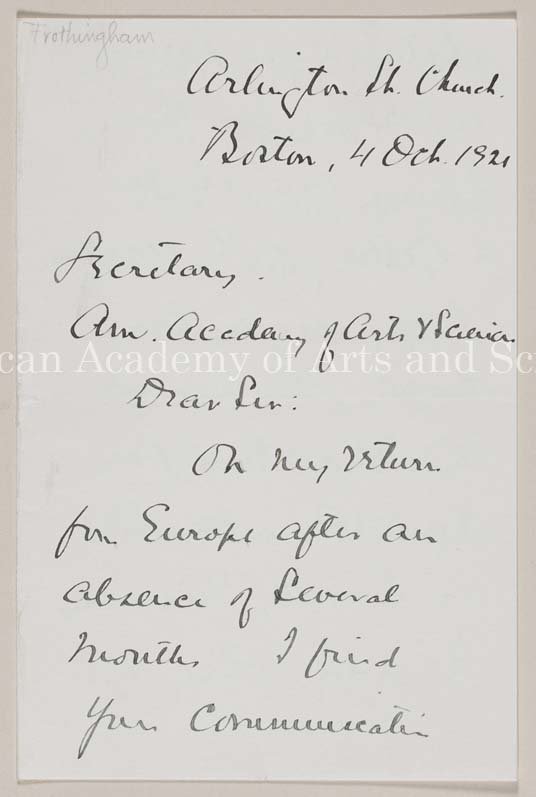 Frothingham
Arlington St. Church.
Boston, 4 Oct. 1921
Secretary.
Am. Academy of Arts & Sciences
can Academy of Arts and Sc
Dear Sir:
On my return
from Europe after an
absence of several
months I find
your communication